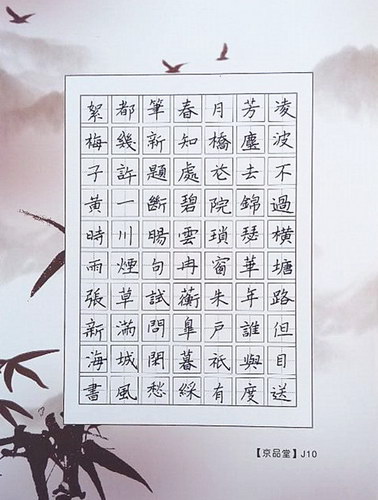 凌波不過橫塘路但目送
芳塵去錦瑟華年誰與度
月橋花院瑣窗朱戶祇有
春知處碧雲冉蘅皐暮綵
筆新題斷腸句試問閑愁
都幾許一川煙草滿城風
絮梅子黃時雨張新海書
【京品堂】J10